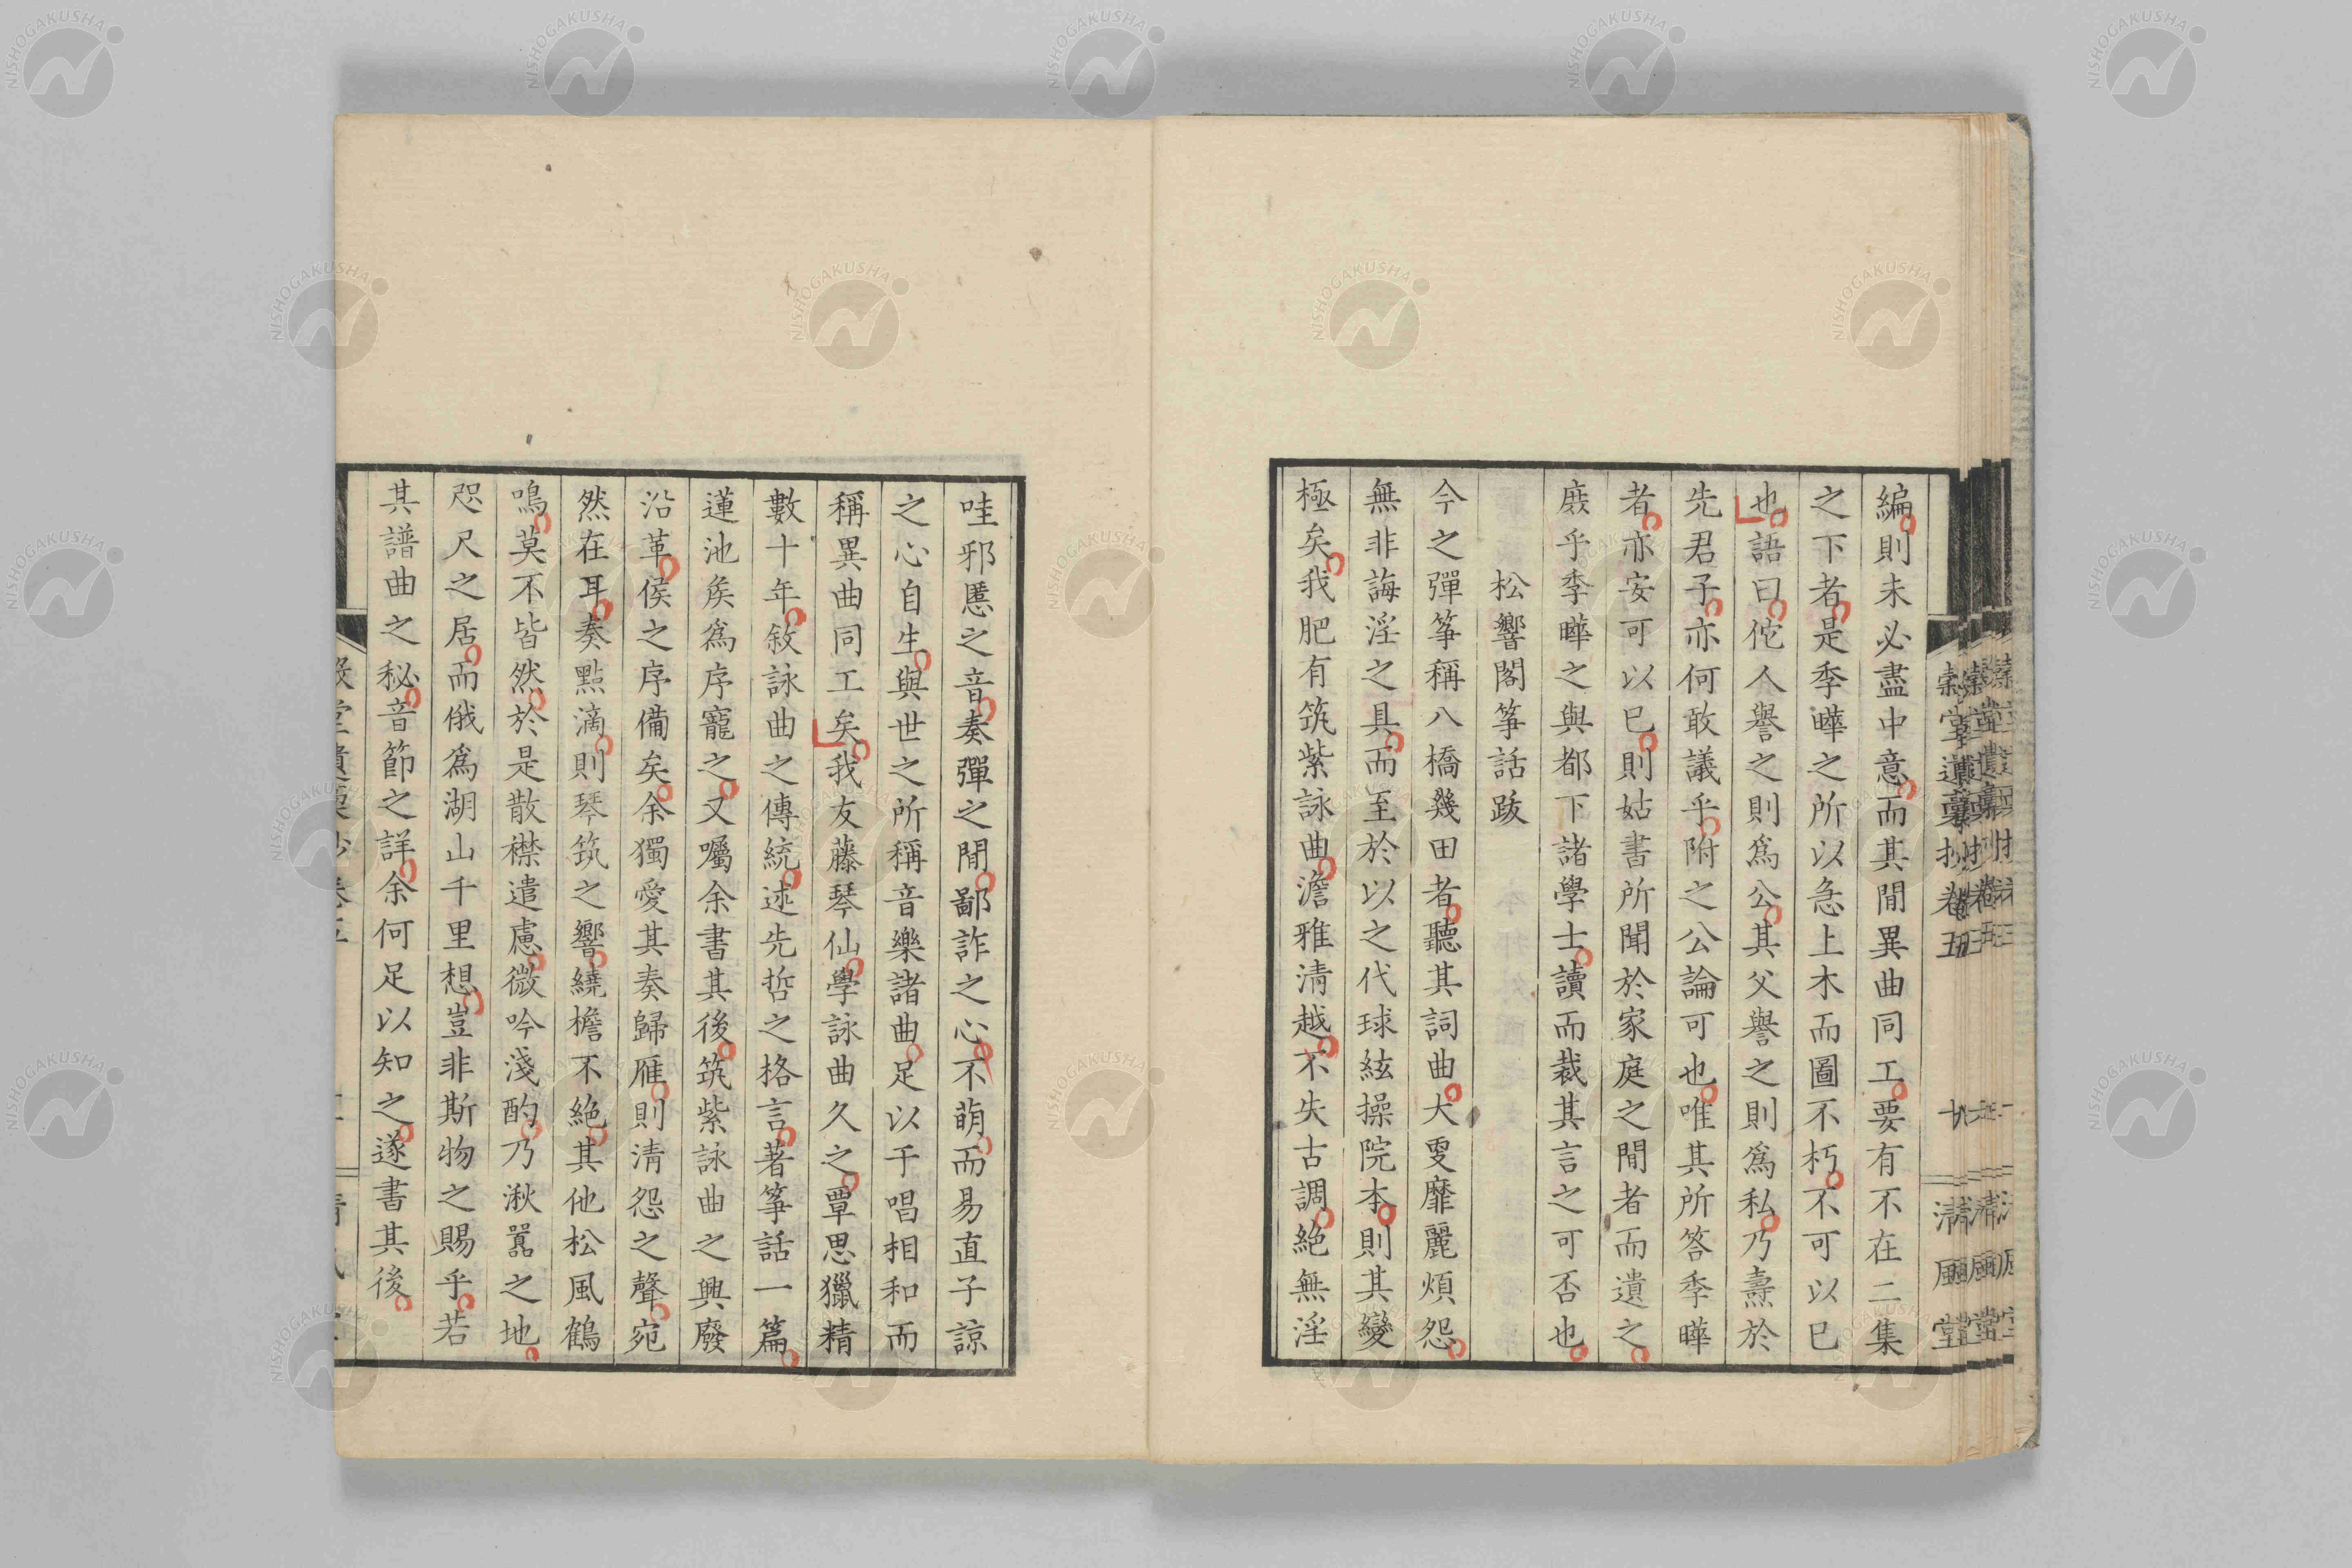 編則未必盡中意而其間異曲同工要有不在二集
之下者是季曄之所以急上木而圖不朽不可以已
也語曰佗人譽之則爲公其父譽之則爲私乃壽於
先君子亦何敢議乎附之公論可也唯其所答季曄
者亦安可以已則姑書所聞於家庭之間者而遺之
庶乎季曄之與都下諸學士讀而裁其言之可否也
松響閣箏話跋
今之彈箏稱八橋幾田者聽其詞曲大率靡麗煩怨
無非誨淫之具而至於以之代球絃操院本則其變
極矣我肥有筑紫詠曲澹雅清越不失古調絶無淫
哇邪慝之音奏彈之間鄙詐之心不萌而易直子諒
之心自生與世之所稱音樂諸曲足以干唱相和而
稱異曲同工矣我友藤琴仙學詠曲久之覃思獵精
數十年敘詠曲之傳統述先哲之格言著箏話一篇
蓮池矦爲序寵之又囑余書其後筑紫詠曲之興廢
沿革侯之序備矣余獨愛其奏歸雁則清怨之聲宛
然在耳奏點滴則琴筑之響繞檐不絶其他松風鶴
鳴莫不皆然於是散襟遣慮微吟淺酌乃湫囂之地
咫尺之居而俄爲湖山千里想豈非斯物之賜乎若
其譜曲之秘音節之詳余何足以知之遂書其後
NISHOGAKUSHA